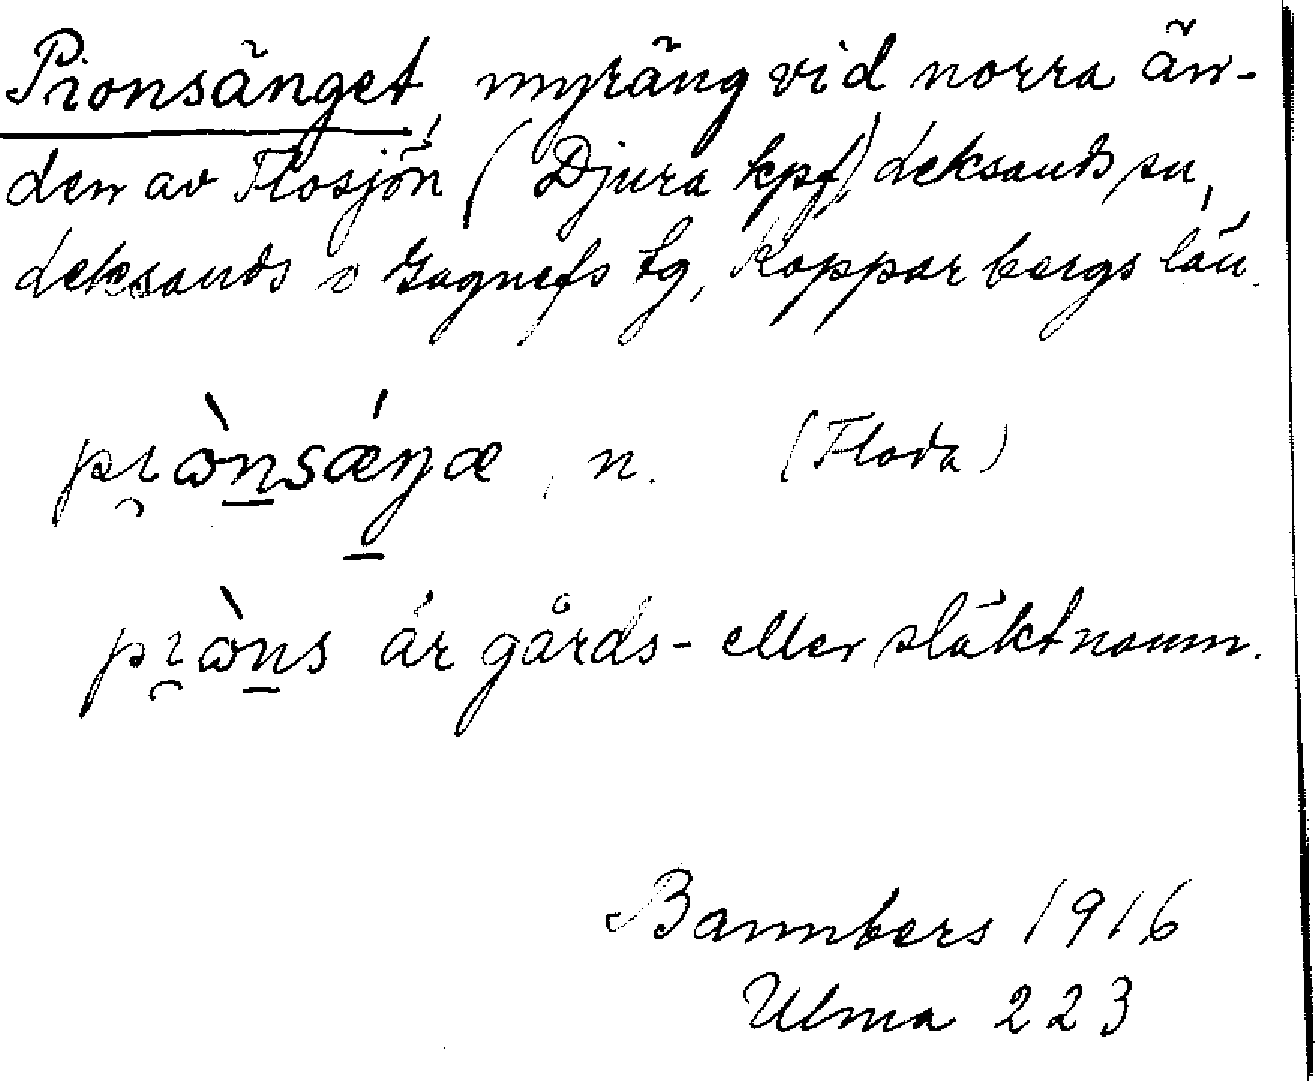 Pionsänget, myräng vid norra än-
den av Flosjön (Djura kpf) Leksands sn,
Leksands o Gagnefs tg, Kopparbergs län.
pı̯ὼn̲sǽŋ̲æ, n. (Floda)
pı̯ὼn̲s är gårds- eller släktnamn.
Bannbers 1916
Ulma 223